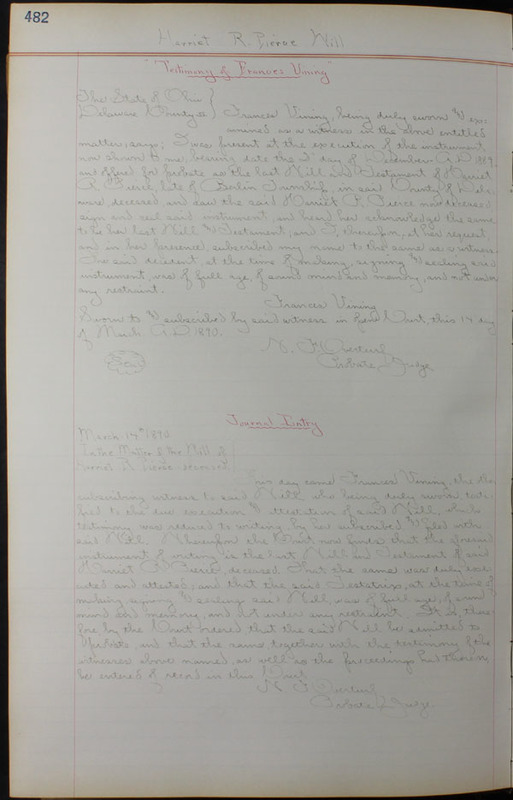 482
Harriet R. Pierce Will
"Testimony of Frances Vining"
The State of Ohio
Delaware County, ss Frances Vining, being duly sworn & exa-
amined as a witness in the above entitled
matter, says; I was present at the execution of the instrument
now shown to me, bearing date the day of December A.D. 1889.
and offered for probate as the last Will and Testament of Harriet
R. Pierce, late of Berlin Township, in said County of Dela-
ware, deceased, and saw the said Harriet R. Pierce now deceased
sign and seal said instrument, and heard her acknowledge the same
to be her last Will & Testament, and I, therefor, at her request
and in her presence, subscribed my name to the same as a witness.
The said decedent, at the time of making, signing & sealing said
instrument, was of full age, of sound mind and memory, and not under
any restraint.
Frances Vining
Sworn to & subscribed by said witness in open Court, this 14 day
of March A.D 1890.
Probate Judge
Seal
Journal Entry
March 14th 1890
In the Matter of the Will of
Harriet R. Pierce deceased
This day came Frances Vining, the
subscribing witness to said Will, who being duly sworn testi-
fied to the due execution & attestation of said Will, which
testimony was reduced to writing by her subscribed & filed with
said Will. Wherefore the Court now finds that the aforesaid
instrument of writing is the last Will and Testament of said
Harriet R. Pierce, deceased. That the same was duly exe-
cuted and attested, and that the said Testatrix, at the time of
making, signing & sealing said Will, was of full age, of sound
mind and memory, and not under any restraint. It is there-
fore by the Court ordered that the said Will be admitted to
Probate, and that the same together with the testimony of the
witnesses above named, as well as the proceedings had therein,
be entered of record in this Court
Probate Judge.